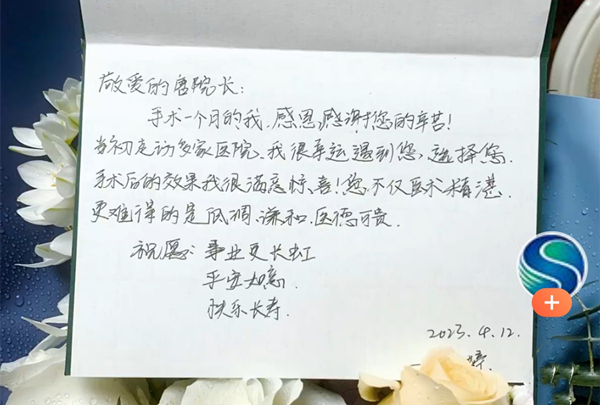 敬爱的唐院长：
手术一个月的我、感恩,感谢您的辛苦！
当初走访多家医院、我很幸运遇到您,选择您.
手术后的效果我很满意惊喜！您不仅医术精湛.
更难得的是低调、谦和、医德可贵.
祝愿：事业更长虹
平安如意.
快乐长寿.
2023.4.12.
婷.